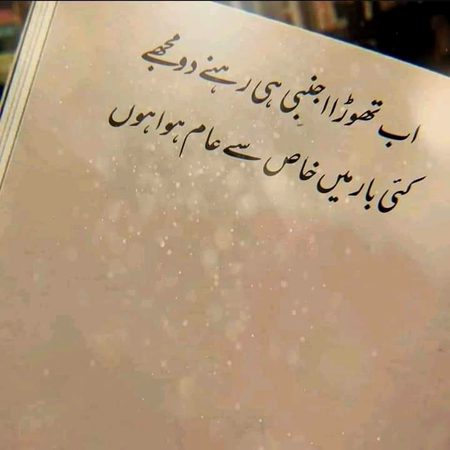 اب تھوڑا اجنبی ہی رہنے دو مجھے
کئی بار میں خاص سے عام ہوا ہوں